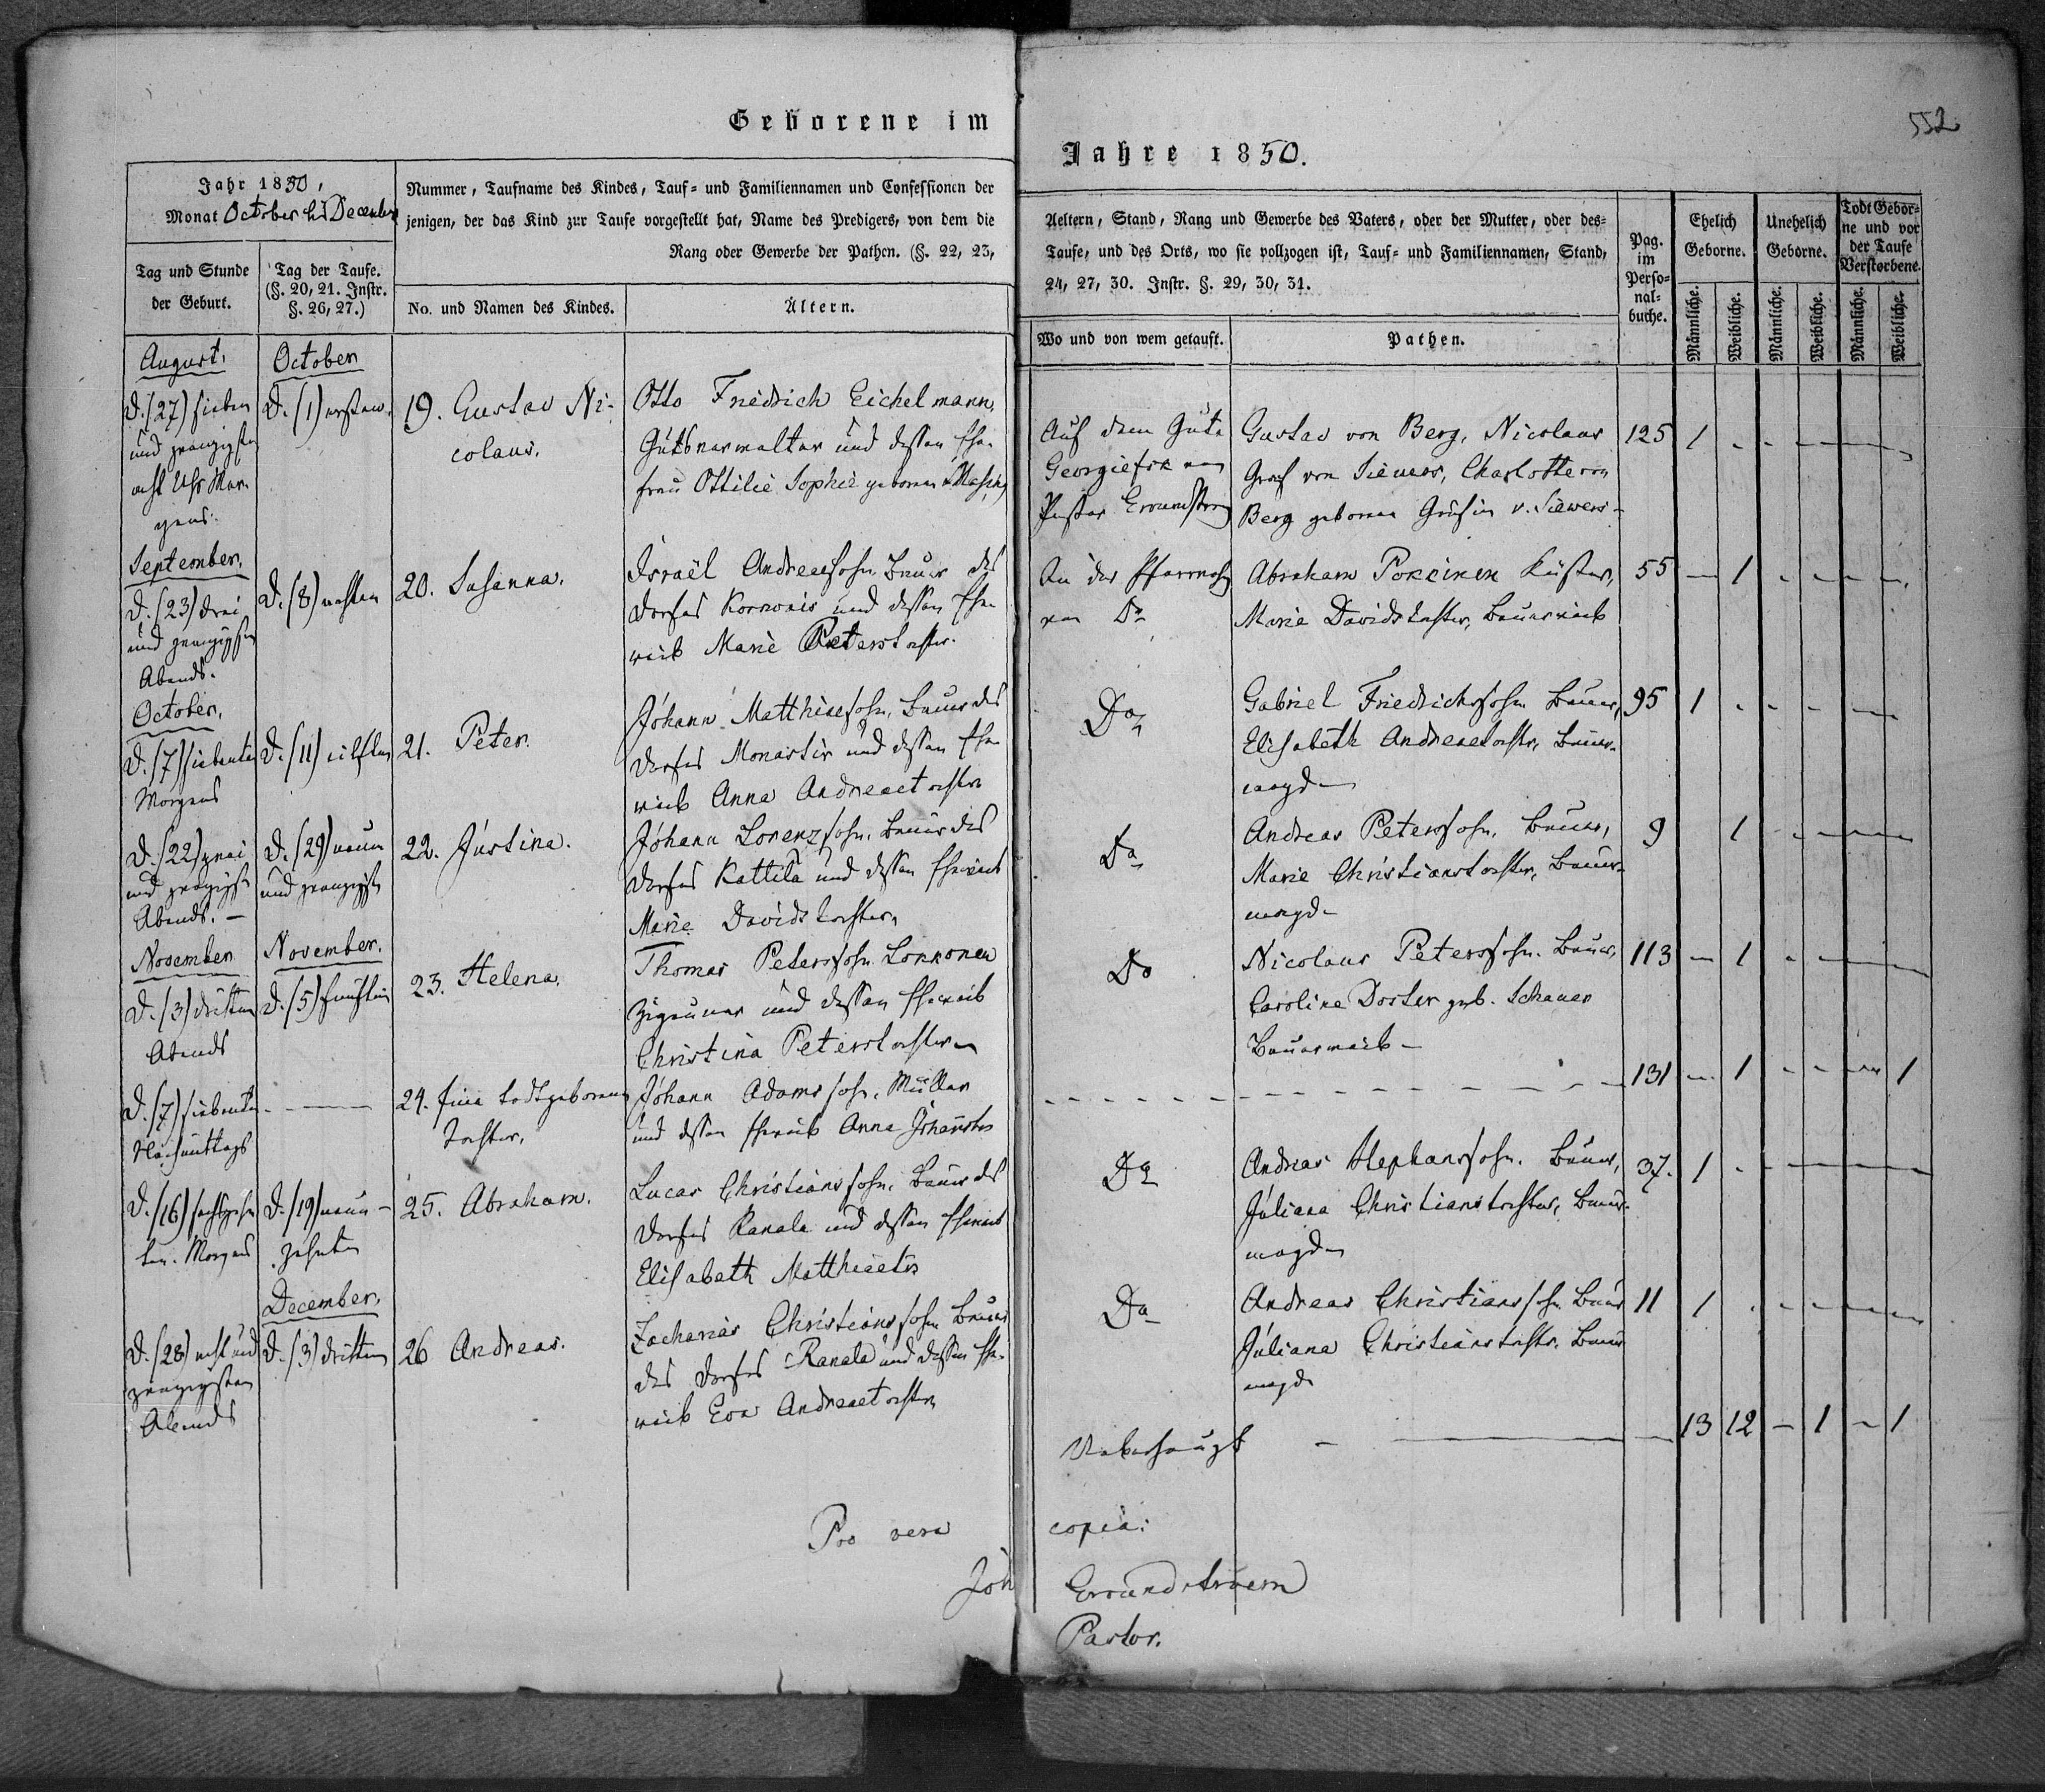 Geborene im
Jahr 1850,
Monat October bis December
Nummer, Taufname des Kindes, Tauf= und Familiennamen und Confessionen der
jenigen, der das Kind zur Taufe vorgestellt hat, Name des Predigers, von dem die
Rang oder Gewerbe der Pathen. (§. 22, 23,
Tag und Stunde
der Geburt.
Tag der Taufe.
(§. 20, 21. Instr.
§. 26, 27.)
No. und Namen des Kindes.
Ältern.
August.
D. (27) sieben
und zwanzigsten
acht Uhr Mor-
gens.
October
D. (1) ersten.
19. Gustav Ni-
colaus.
Otto Friedrich Eichelmann,
Gutsverwalter und dessen Ehe-
frau Ottilie Sophie geborene
September.
D. (23) drei
und zwanzigsten
Abends.
D. (8) achten
20. Susanna.
Israël Andreassohn, Bauer des
Dorfes Korwois und dessen Ehe-
weib Marie Peterstochter.
October.
D. (7) siebenten
Morgens
D. (11) eilften
21. Peter.
Johann Matthiassohn, Bauer des
Dorfes Monastir und dessen Ehe-
weib Anna Andreaetochter
D. (22) zwei
und zwanzigsten
Abends. —
D. (29) neun
und zwanzigsten
22. Justina.
Johann Lorenzsohn, Bauer des
Dorfes Kattila und dessen Eheweib
Marie Davidstochter
November
D. (3) dritten
Abends
November.
D. (5) fünften
23. Helena.
Thomas Peterssohn Lonkonen
Zigeuner und dessen Eheweib
Christina Peterstochter
D. (7) siebenten
Nachmittags
24. Eine todtgeborene
Tochter.
Johann Adamssohn, Müller
und dessen Eheweib Anna Johannstr
D. (16) sechzehn
ten. Morgens
D. (19) neun-
zehnten
25. Abraham.
Lucas Christianssohn, Bauer des
Dorfes Ranala und dessen Eheweib
Elisabeth Matthiaetr
D. (28) acht und
zwanzigsten
Abends
December.
D. (3) dritten
26 Andreas.
Zacharias Christianssohn Bauer
des Dorfes Ranala und dessen Ehe-
weib Eva Andreaetochter
Pro vera
Joh
552
Jahre 1850.
Aeltern, Stand, Rang und Gewerbe des Vaters, oder der Mutter, oder des=
Taufe, und des Orts, wo sie vollzogen ist, Tauf= und Familiennamen, Stand,
24, 27, 30. Instr. §. 29, 30, 31.
Wo und von wem getauft.
Pathen.
Pag.
im
Perso=
nal=
buche.
Ehelich
Geborne.
Unehelich
Geborne.
Todt Gebor=
ne und vor
der Taufe
Verstorbene.
Männliche.
Weibliche.
Männliche.
Weibliche.
Männliche.
Weibliche.
Auf dem Gute
Georgiefsk von
Pastor Errundstroem
Gustav von Berg, Nicolaus
Graf von Siewers, Charlotte von
Berg geborene Gräfin v. Siewers
125 1
In der Pfarrwohng
von Do
Abraham Pokkinen Küster,
Marie Davidstochter, Bauerweib
55 — 1
Do
Gabriel Friedrichssohn Bauer,
Elisabeth Andreaetochtr, Bauer-
magd
95 1
Do
Andreas Peterssohn, Bauer,
Marie Christianstochter, Bauer-
magd
9 1
Do
Nicolaus Peterssohn, Bauer,
Caroline Doster geb. Schauer
Bauerweib
113 — 1
131 — 1 1
Do
Andreas Stephanssohn. Bauer,
Juliana Christianstochter, Bauer-
magd
37. 1
Do
Andreas Christianssohn Bauer
Juliana Christianstochtr. Bauer
magd
11 1
Ueberhaupt
13 12 — 1 — 1
copia:
Errundstroem
Pastor.